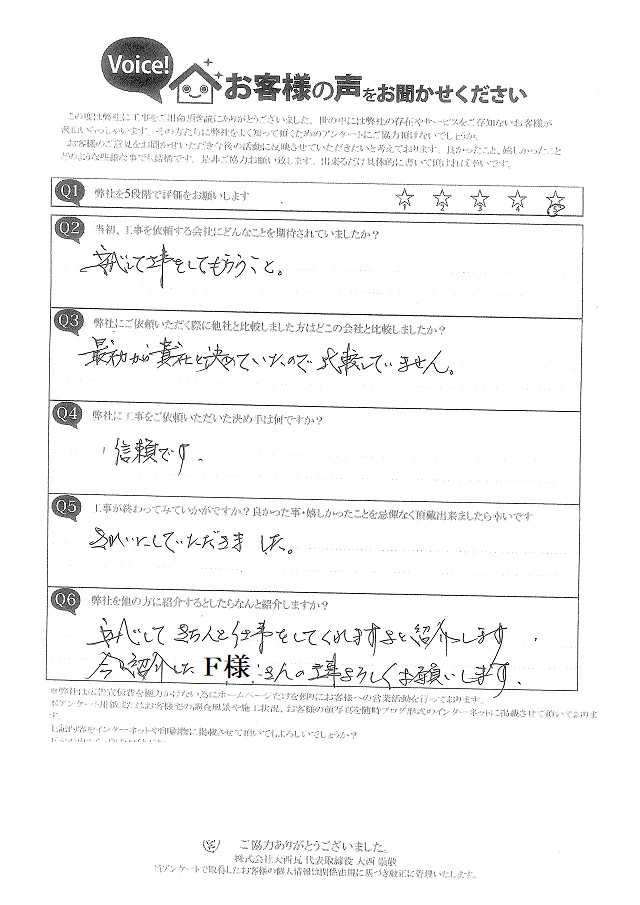 Voice!
お客様の声をお聞かせください
この度は弊社に工事をご用命頂き誠にありがとうございました。世の中には弊社の存在やサービスをご存知ないお客様が
沢山いらっしゃいます。その方たちに弊社をよく知って頂くためのアンケートにご協力頂けないでしょうか。
お客様のご意見をお聞かせいただき今後の活動に反映させていただきたいと考えております。良かったこと、嬉しかったこと
どのような些細な事でも結構です。是非ご協力お願い致します。出来るだけ具体的に書いて頂ければ幸いです。
Q1 弊社を5段階で評価をお願いします 1 2 3 4 5
Q2 当初、工事を依頼する会社にどんなことを期待されていましたか？
安心して工事をしてもらうこと。
Q3 弊社にご依頼いただく際に他社と比較しました方はどこの会社と比較しましたか？
最初から貴社と決めていたので比較していません。
Q4 弊社に工事をご依頼いただいた決め手は何ですか？
信頼です.
Q5 工事が終わってみていかがですか？良かった事・嬉しかったことを忌憚なく頂戴出来ましたら幸いです
きれいにしていただきました。
Q6 弊社を他の方に紹介するとしたらなんと紹介しますか？
安心して きちんと仕事をしてくれますよと紹介します.
紹介した F様 さんの工事よろしくお願いします.
※弊社は広告宣伝費を極力かけない為にホームページだけを頼りにお客様への営業活動を行っております。
本アンケート用紙またはお客様宅の調査風景や施工状況、お客様の顔写真を随時ブログ形式のインターネットに掲載させて頂いておりま
す。
上記内容をインターネットや印刷物に掲載させて頂いてもよろしいでしょうか？
ご協力ありがとうございました。
株式会社大西瓦 代表取締役 大西 崇敬
当アンケートで取得したお客様の個人情報は関係法規に基づき厳正に管理いたします。